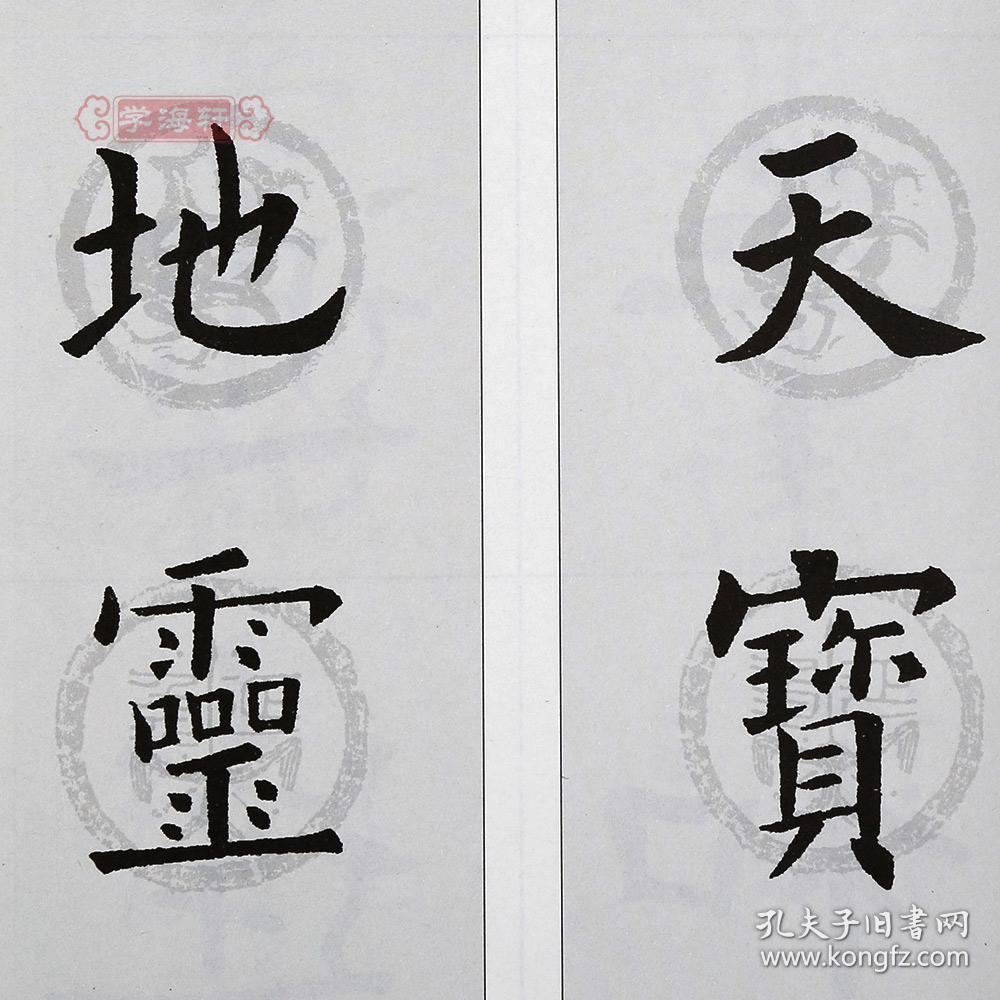 天寶
地靈
学海轩
孔夫子旧書网
www.kongfz.com